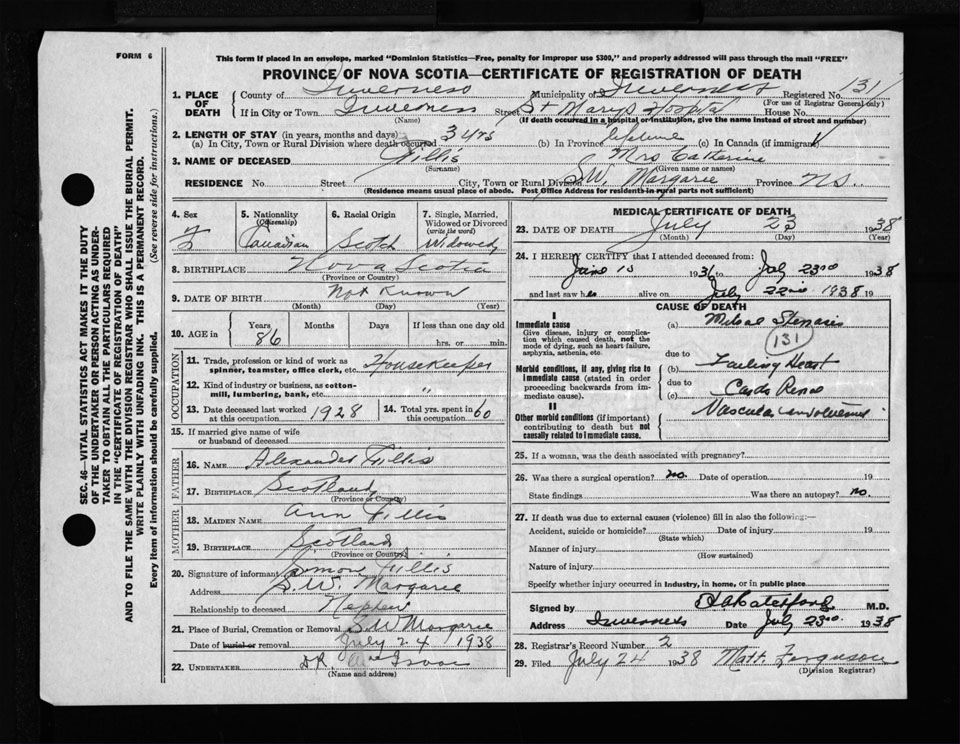 FORM 6
This form if placed in an envelope, marked "Dominion Statistics—Free, penalty for improper use $300," and properly addressed will pass through the mail "FREE"
PROVINCE OF NOVA SCOTIA—CERTIFICATE OF REGISTRATION OF DEATH
1. PLACE OF DEATH
County of Inverness Municipality of Inverness Registered No. 131
(For use of Registrar General only)
If in City or Town Inverness Street St Mary's Hospital House No.
(Name) (If death occurred in a hospital or institution, give the name instead of street and number)
2. LENGTH OF STAY (in years, months and days)
(a) In City, Town or Rural Division where death occurred 3 yrs (b) In Province lifetime (c) In Canada (if immigrant)
3. NAME OF DECEASED Gillis Mrs Catherine
(Surname) (Given name or names)
RESIDENCE No. Street City, Town or Rural Division S.W. Margaree Province N.S.
(Residence means usual place of abode. Post Office Address for residents in rural parts not sufficient)
4. Sex F
5. Nationality (Citizenship) Canadian
6. Racial Origin Scotch
7. Single, Married, Widowed or Divorced (write the word) Widowed
8. BIRTHPLACE Nova Scotia
(Province or Country)
9. DATE OF BIRTH Not Known
(Month) (Day) (Year)
10. AGE in Years 86 Months Days If less than one day old
hrs. or min.
OCCUPATION
11. Trade, profession or kind of work as spinner, teamster, office clerk, etc. Housekeeper
12. Kind of industry or business, as cotton-mill, lumbering, bank, etc. "
13. Date deceased last worked at this occupation 1928
14. Total yrs. spent in this occupation 60
15. If married give name of wife or husband of deceased
FATHER
16. NAME Alexander Gillis
17. BIRTHPLACE Scotland
(Province or Country)
MOTHER
18. MAIDEN NAME Ann Gillis
19. BIRTHPLACE Scotland
(Province or Country)
20. Signature of informant Simon Gillis
Address S.W. Margaree
Relationship to deceased Nephew
21. Place of Burial, Cremation or Removal S.W Margaree
Date of burial or removal July 24 / 1938
22. UNDERTAKER
(Name and address)
MEDICAL CERTIFICATE OF DEATH
23. DATE OF DEATH July 23 1938
(Month) (Day) (Year)
24. I HEREBY CERTIFY that I attended deceased from:
June 15 1936 to July 23rd 1938
and last saw her alive on July 22nd 1938 19
CAUSE OF DEATH
I
Immediate cause
Give disease, injury or complication which caused death, not the mode of dying, such as heart failure, asphyxia, asthenia, etc.
(a) Mitral Stenosis
131
due to
Morbid conditions, if any, giving rise to immediate cause (stated in order proceeding backwards from immediate cause).
(b) Failing Heart
due to
(c) Cardio Renal
II
Other morbid conditions (important) contributing to death but not causally related to I immediate cause.
Vascular involvement
25. If a woman, was the death associated with pregnancy?
26. Was there a surgical operation? no. Date of operation 19
State findings Was there an autopsy? no.
27. If death was due to external causes (violence) fill in also the following:—
Accident, suicide or homicide? Date of injury 19
(State which)
Manner of injury
(How sustained)
Nature of injury
Specify whether injury occurred in Industry, in home, or in public place
Signed by M.D.
Address Inverness Date July 23rd. 1938
28. Registrar's Record Number 2
29. Filed July 24 1938 Ferguson
(Division Registrar)
SEC. 46—VITAL STATISTICS ACT MAKES IT THE DUTY
OF THE UNDERTAKER OR PERSON ACTING AS UNDERTAKER TO OBTAIN ALL THE PARTICULARS REQUIRED
IN THE "CERTIFICATE OF REGISTRATION OF DEATH"
AND TO FILE THE SAME WITH THE DIVISION REGISTRAR WHO SHALL ISSUE THE BURIAL PERMIT.
WRITE PLAINLY WITH UNFADING INK. THIS IS A PERMANENT RECORD.
Every item of information should be carefully supplied. (See reverse side for instructions.)